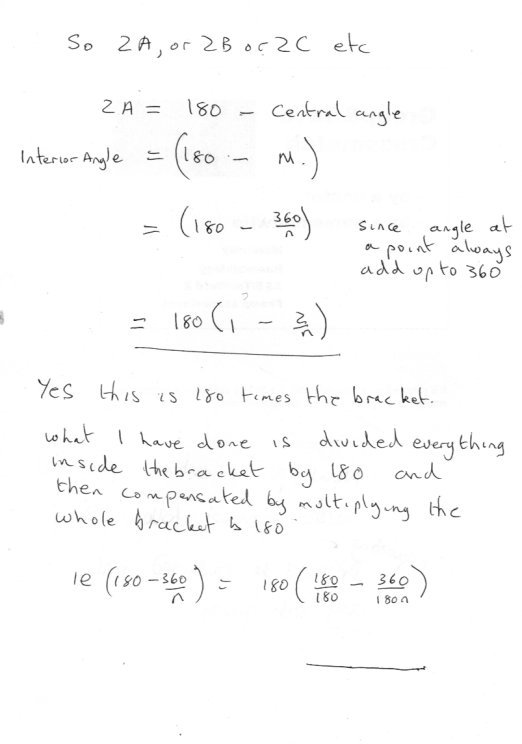 So 2A, or 2B or 2C etc
2A = 180 - Central angle
Interior Angle = (180 - M.)
= (180 - 360/n) since angle at
a point always
add up to 360
= 180 (1 - 2/n)
Yes this is 180 times the bracket.
what I have done is divided everything
inside the bracket by 180 and
then compensated by multiplying the
whole bracket b 180
ie (180 - 360/n) = 180 (180/180 - 360/180n)